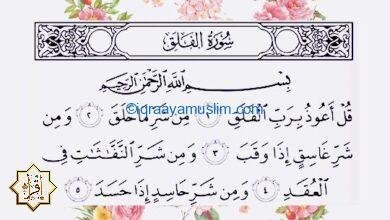 سُورَةُ الْفَلَقِ
بِسْمِ اللَّهِ الرَّحْمَٰنِ الرَّحِيمِ
©iqraayamuslim.com
قُلْ أَعُوذُ بِرَبِّ الْفَلَقِ ١ مِن شَرِّ مَا خَلَقَ ٢ وَمِن
شَرِّ غَاسِقٍ إِذَا وَقَبَ ٣ وَمِن شَرِّ النَّفَّاثَاتِ فِي
الْعُقَدِ ٤ وَمِن شَرِّ حَاسِدٍ إِذَا حَسَدَ ٥
اقرأ